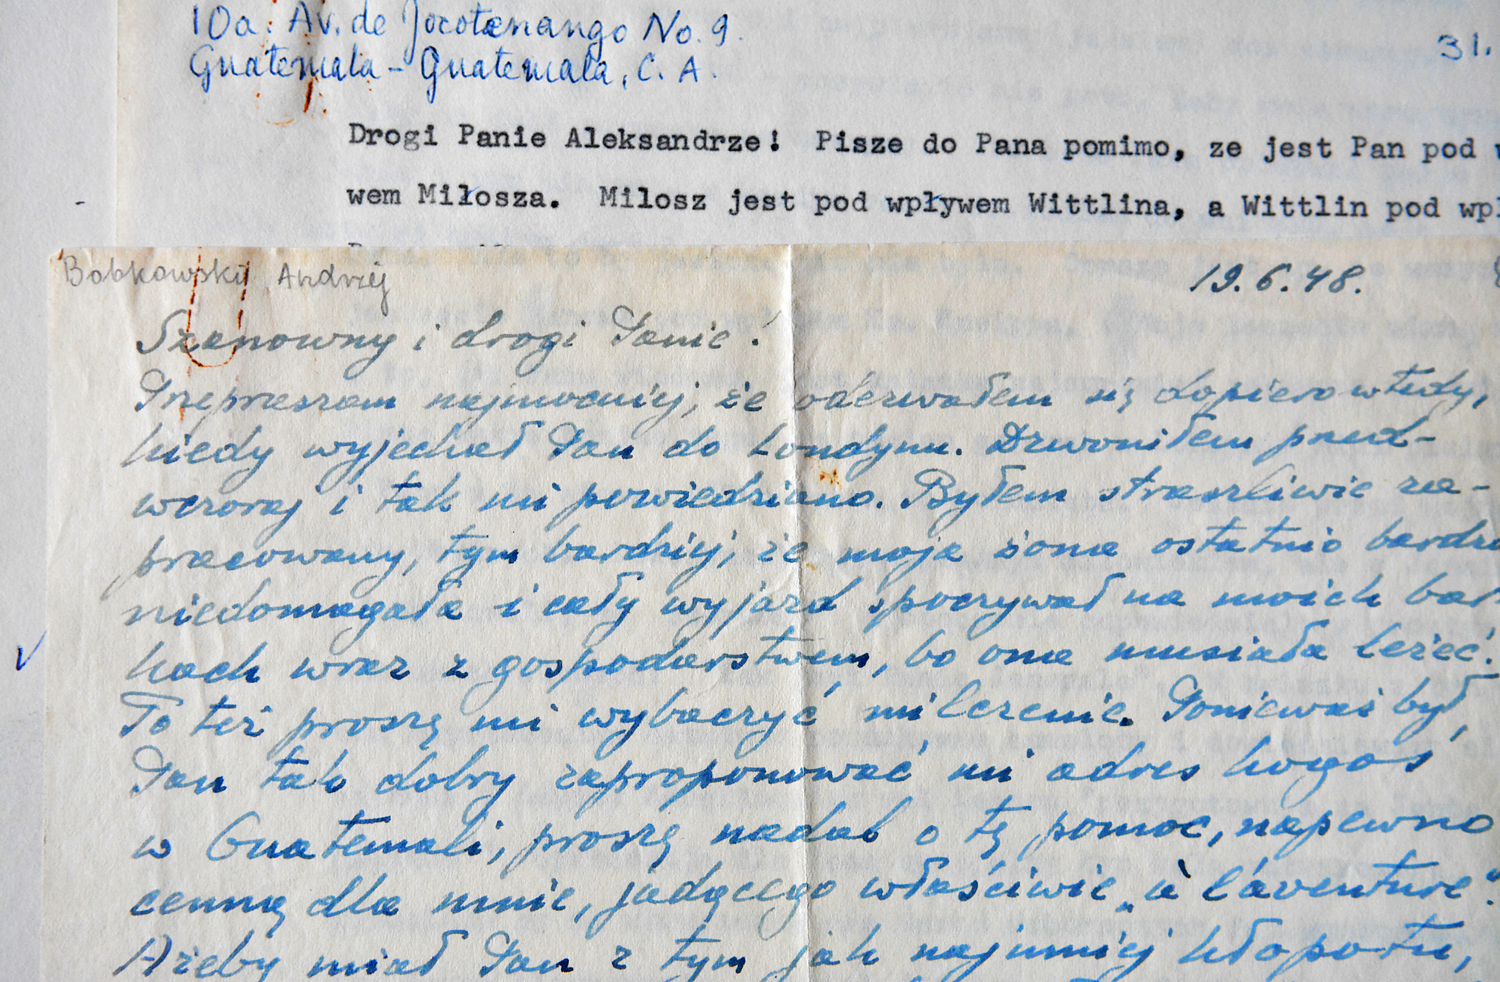 10a. Av. de Jocotenango No. 9.
31.
Guatemala - Guatemala, C. A.
Drogi Panie Aleksandrze! Pisze do Pana pomimo, ze jest Pan pod
wem Miłosza. Milosz jest pod wpływem Wittlina, a Wittlin pod wpł
Bobkowski Andrzej
19.6.48.
Szanowny i drogi Panie!
Przepraszam najmocniej, że odezwałem się dopiero wtedy,
kiedy wyjechał Pan do Londynu. Dzwoniłem przed-
wczoraj i tak mi powiedziano. Byłem straszliwie za-
pracowany, tym bardziej, że moja żona ostatnio bardzo
niedomagała i cały wyjazd spoczywał na moich bar-
kach wraz z gospodarstwem, bo ona musiała leżeć.
To też proszę mi wybaczyć milczenie. Ponieważ był
Pan tak dobry zaproponować mi adres kogoś
w Guatemali, proszę nadal o tę pomoc, napewno
cenną dla mnie, jadącego właściwie „à l'aventure".
Ażeby miał Pan z tym jak najmniej kłopotu,